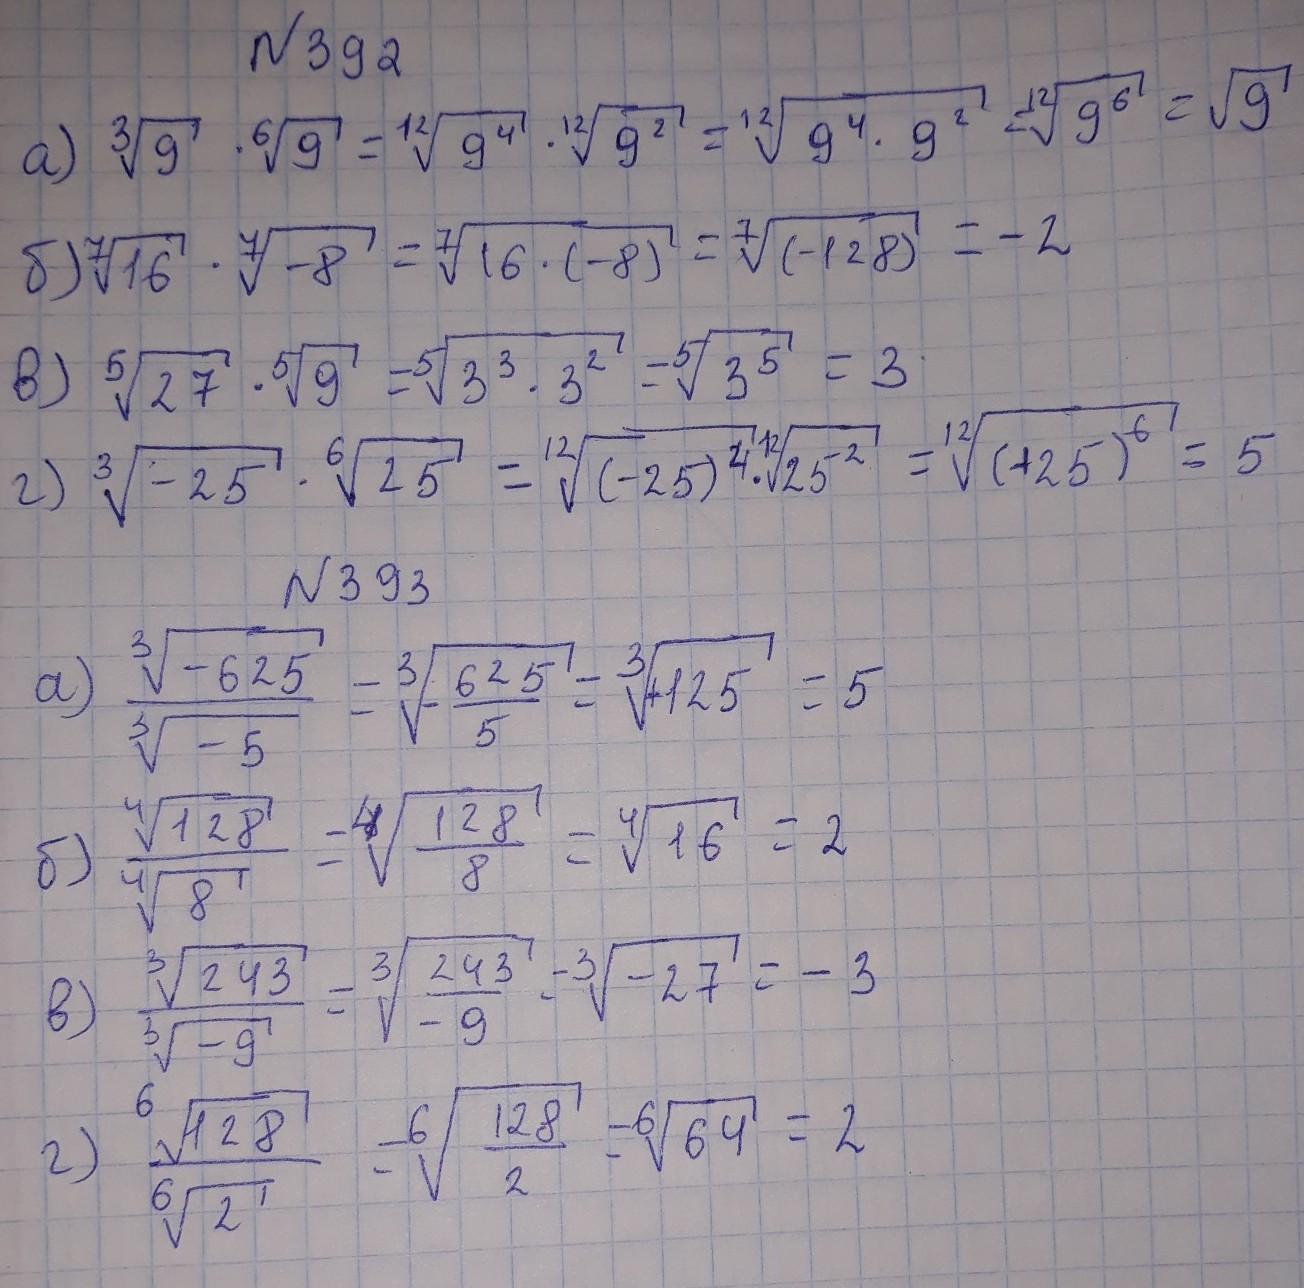 N392
а) ∛9 · ⁶√9 = ¹²√9⁴ · ¹²√9² = ¹²√(9⁴ · 9²) = ¹²√9⁶ = √9
б) ⁷√16 · ⁷√-8 = ⁷√(16 · (-8)) = ⁷√(-128) = -2
в) ⁵√27 · ⁵√9 = ⁵√(3³ · 3²) = ⁵√3⁵ = 3
г) ∛-25 · ⁶√25 = ¹²√(-25)⁴ · ¹²√25² = ¹²√(+25)⁶ = 5
N393
а) ∛-625 / ∛-5 = ∛-625/5 = ∛+125 = 5
б) ⁴√128 / ⁴√8 = ⁴√128/8 = ⁴√16 = 2
в) ∛243 / ∛-9 = ∛243/-9 = ∛-27 = -3
г) ⁶√128 / ⁶√2 = ⁶√128/2 = ⁶√64 = 2